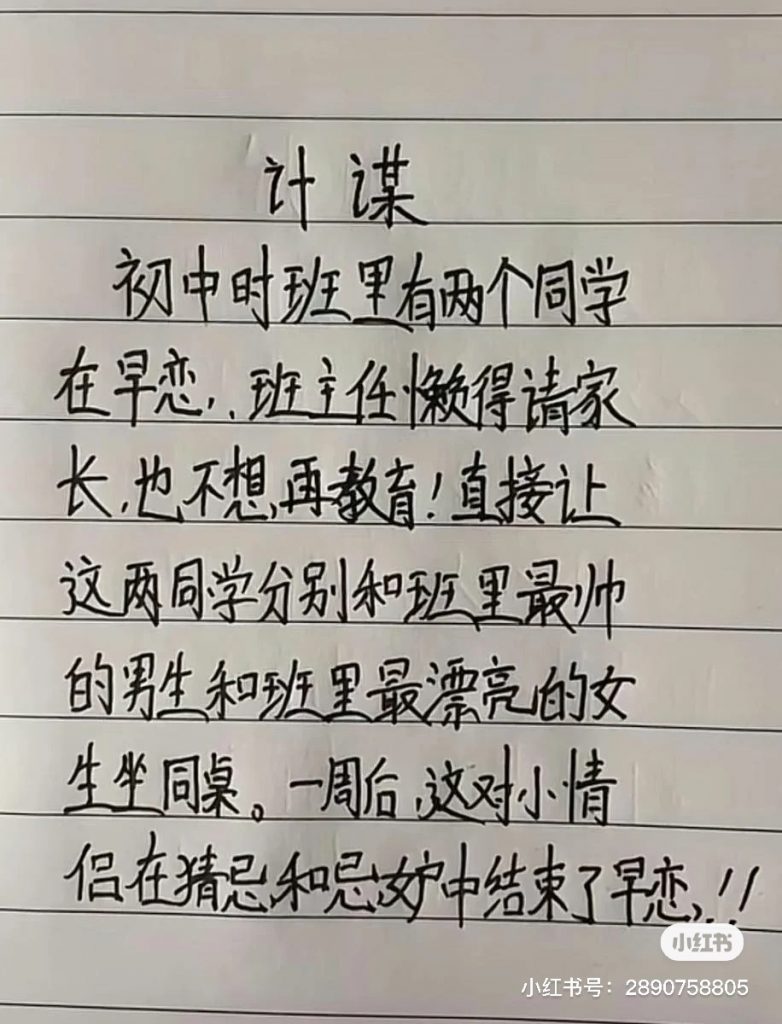 计谋
初中时班里有两个同学
在早恋,.班主任懒得请家
长,也不想,再教育!直接让
这两同学分别和班里最帅
的男生和班里最漂亮的女
生坐同桌。一周后,这对小情
侣在猜忌,和忌妒中结束了早恋,!!
小红书
小红书号：2890758805